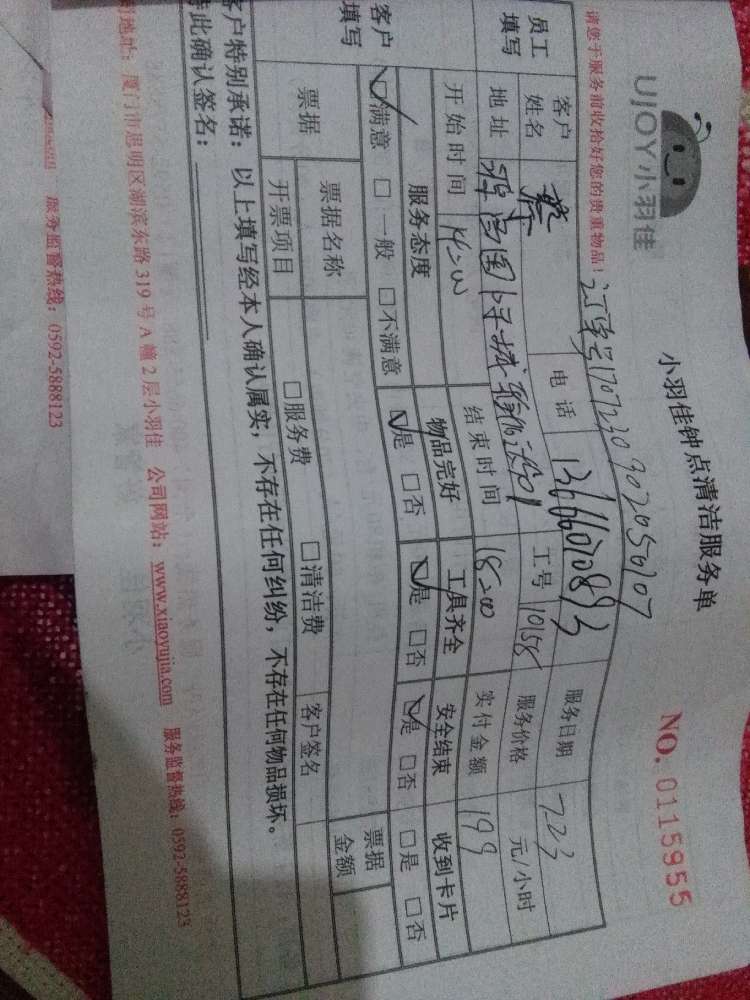 UJOY小羽佳
小羽佳钟点清洁服务单
NO. 0115955
请您于服务前收拾好您的贵重物品！
订单号1707230902056107
员工填写 客户姓名 蔡 电话 13666070893 服务日期 723
地址 工号 10158 服务价格 元/小时
开始时间 14:00 结束时间 18:00 实付金额 199
客户填写 服务态度 物品完好 工具齐全 安全结束 收到卡片
☑满意 □一般 □不满意 ☑是 □否 ☑是 □否 ☑是 □否 □是 □否
票据 票据名称 □服务费 □清洁费 票据金额
开票项目 客户签名
客户特别承诺：以上填写经本人确认属实，不存在任何纠纷，不存在任何物品损坏。
特此确认签名：
司地址：厦门市思明区湖滨东路319号A幢2层小羽佳 公司网站：www.xiaoyujia.com 服务监督热线：0592-5888123
服务监督热线：0592-5888123